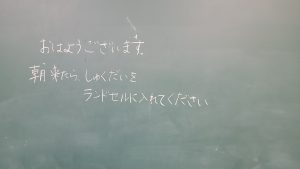 おはようございます。
朝来たら、しゅくだいを
ランドセルに入れてください